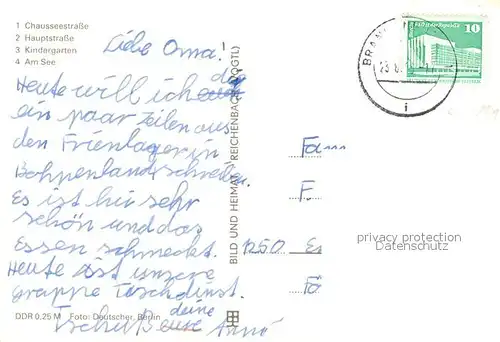 1 Chausseestraße
2 Hauptstraße
3 Kindergarten
4 Am See
Liebe Oma!
Heute will ich dir
ein paar Zeilen aus
den Frienlager in
schreiben.
Es ist hir sehr
schön und das
Essen schmeckt.
Heute ist unsere
grappe Tischdinst.
Tschüß deine
Anne
DDR 0,25 M Foto: Deutscher, Berlin
BILD UND HEIMAT REICHENBACH (VOGTL)
10
Fam
F.
1250 Es
privacy protection
Datenschutz